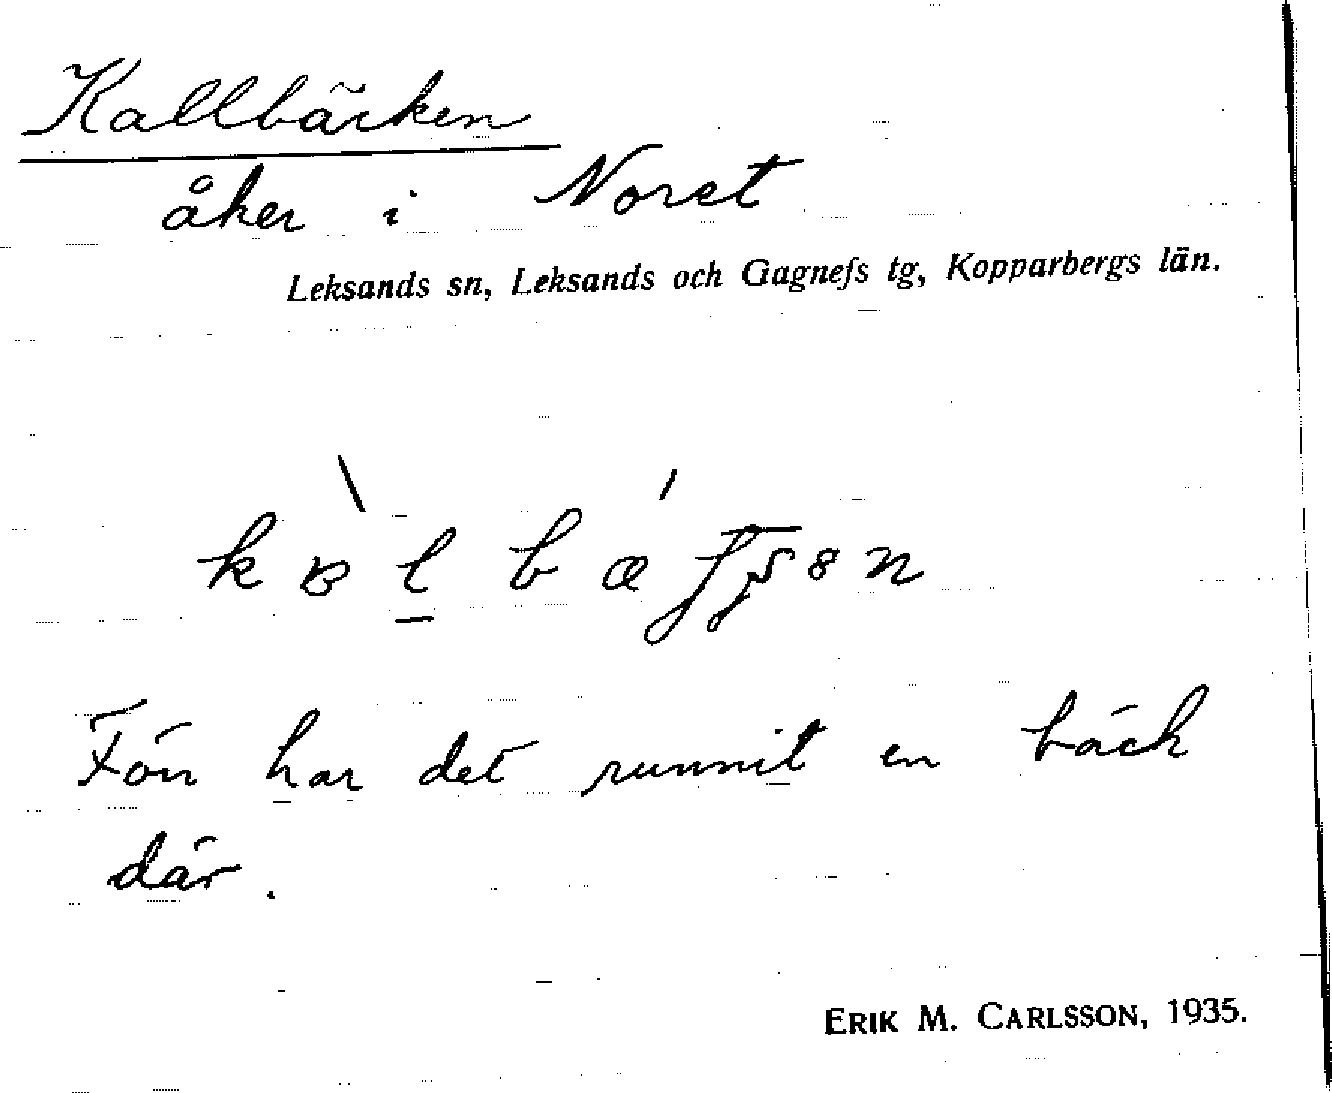 Kallbäcken
åker i Noret
Leksands sn, Leksands och Gagnefs tg, Kopparbergs län.
Förr har det runnit en bäck
där.
ERIK M. CARLSSON, 1935.